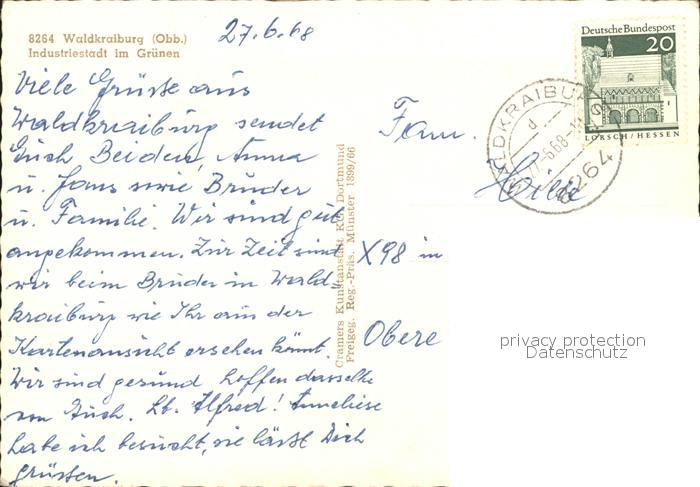 8264 Waldkraiburg (Obb.)
Industriestadt im Grünen
27.6.68
Viele Grüsse aus
Waldkraiburg sendet
Euch Beiden, Anna
u. Hans sowie Bruder
u. Familie. Wir sind gut
angekommen. Zur Zeit sind
wir beim Bruder in Wald=
kraiburg wie Ihr aus der
Kartenansicht ersehen könnt.
Wir sind gesund, hoffen dasselbe
von Euch. Lb. Alfred! Anneliese
habe ich besucht, sie lässt Dich
grüssen.
Cramers Kunstanstalt KG, Dortmund
Freigeg. Reg.-Präs. Münster 1899/66
Deutsche Bundespost
20
LORSCH/HESSEN
WALDKRAIBURG
d
27.6.68
8264
Fam.
X98 in
Obere
privacy protection
Datenschutz